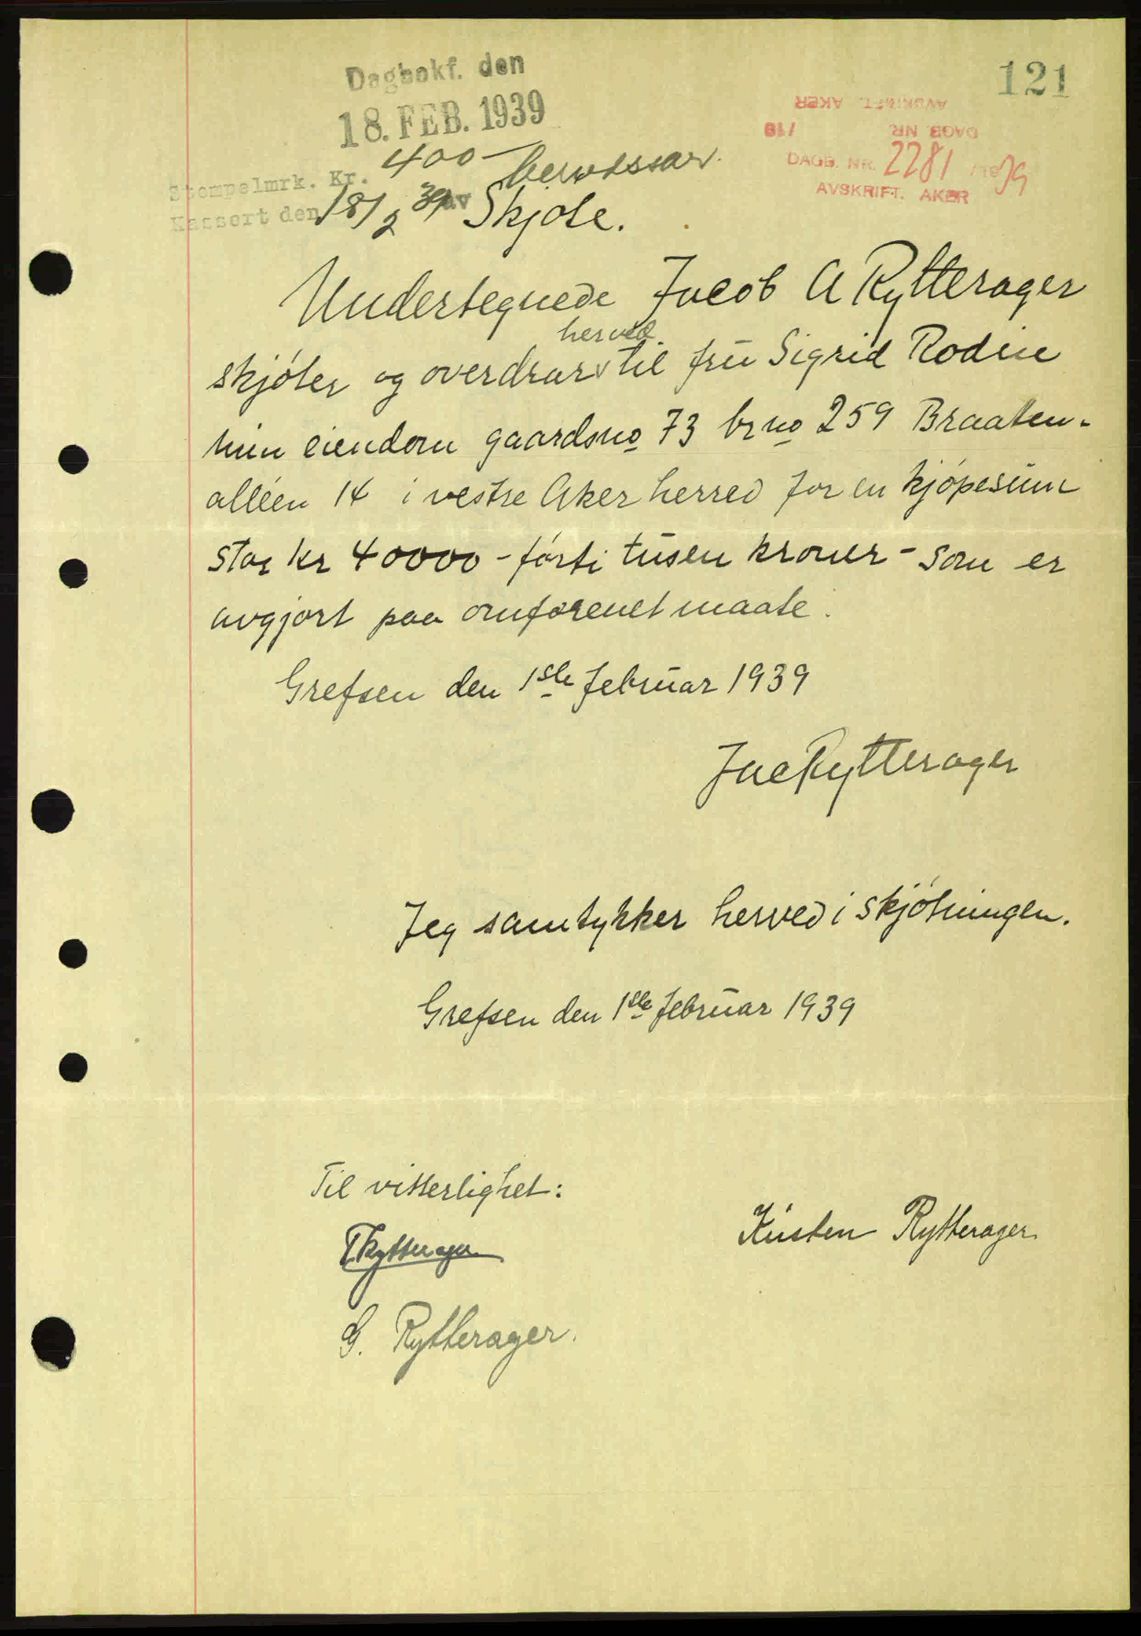 121
Dagbokf. den
18. FEB. 1939
AVSKRIFT. AKER
DAGB. NR. /19
DAGB. NR. 2281 /1939
AVSKRIFT. AKER
Stempelmrk. Kr. 400-
Kassert den 18/2 39 av
Skjöte.
Undertegnede Jacob A Rytterager
skjöter og overdrar herved til fru Sigrid Rodin
min eiendom gaardsno 73 brno 259 Braaten-
alléen 14 i vestre Aker herred for en kjöpesum
stor kr 40000 - förti tusen kroner - som er
avgjort paa omforenet maate.
Grefsen den 1ste februar 1939
Jac Rytterager
Jeg samtykker herved i skjötningen.
Grefsen den 1ste februar 1939
Til vitterlighet:
Kirsten Rytterager
T Rytterager
G. Rytterager.